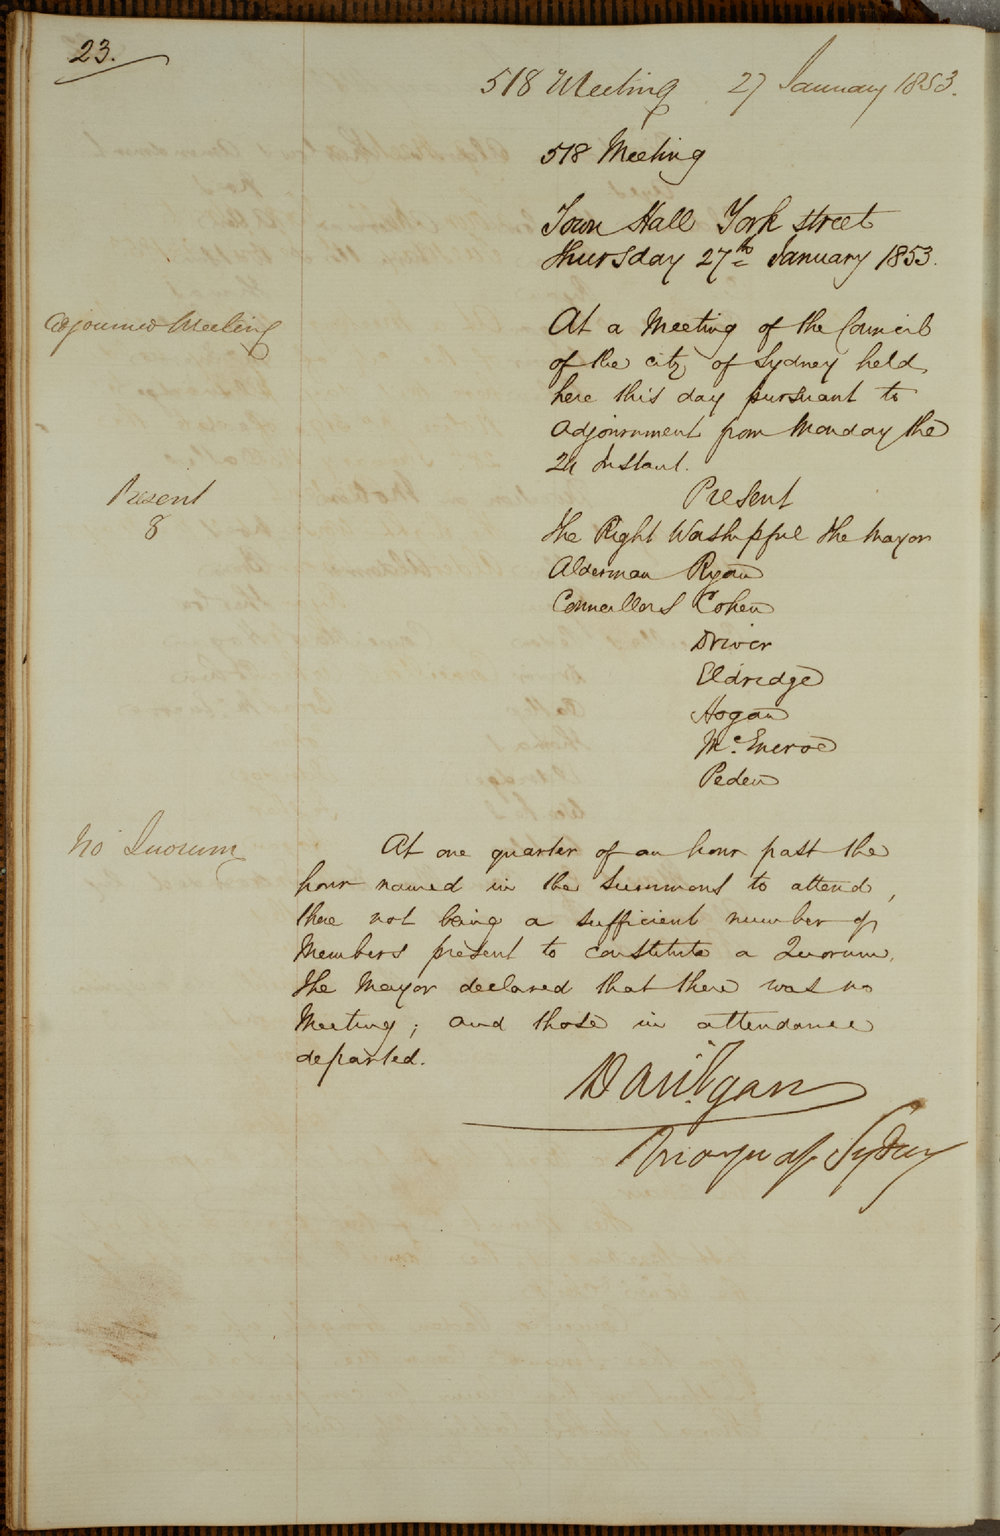 23.
518 Meeting 27 January 1853.
518 Meeting
Town Hall York street
thursday 27th January 1853.
Adjourned Meeting
At a Meeting of the Council
of the city of Sydney held
here this day pursuant to
Adjournment from Monday the
24 Instant.
Present
8
Present
The Right Worshipful the Mayor
Alderman Ryan
Councillors Cohen
Driver
Eldridge
Hogan
McEncroe
Peden
No Quorum
At one quarter of an hour past the
hour named in the Summons to attend,
there not being a sufficient number of
Members present to constitute a Quorum,
the Mayor declared that there was no
Meeting; and those in attendance
departed.
Danl Egan
Mayor of Sydney